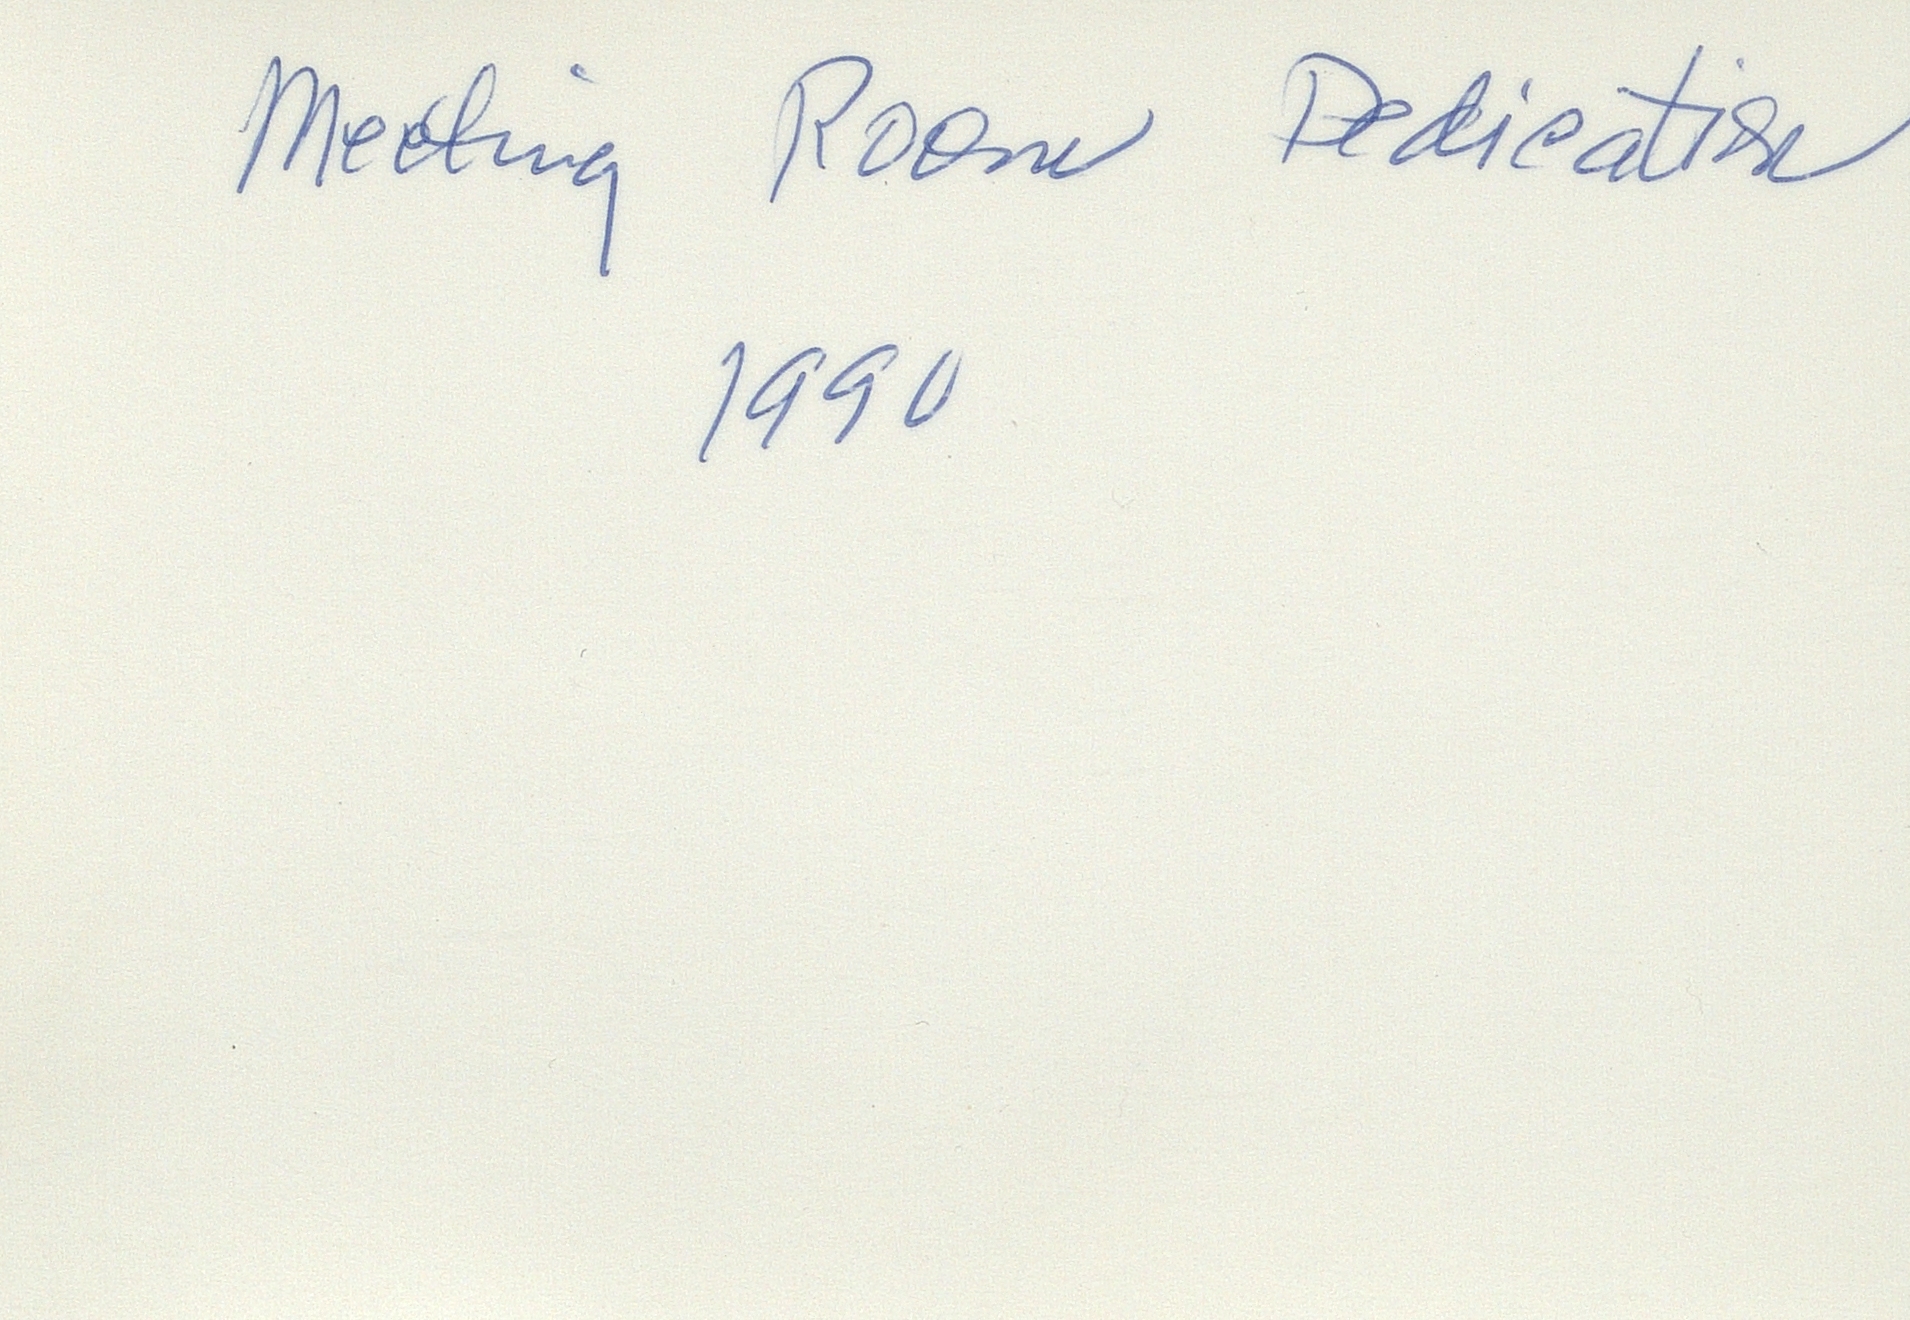 Meeting Room Dedication
1990